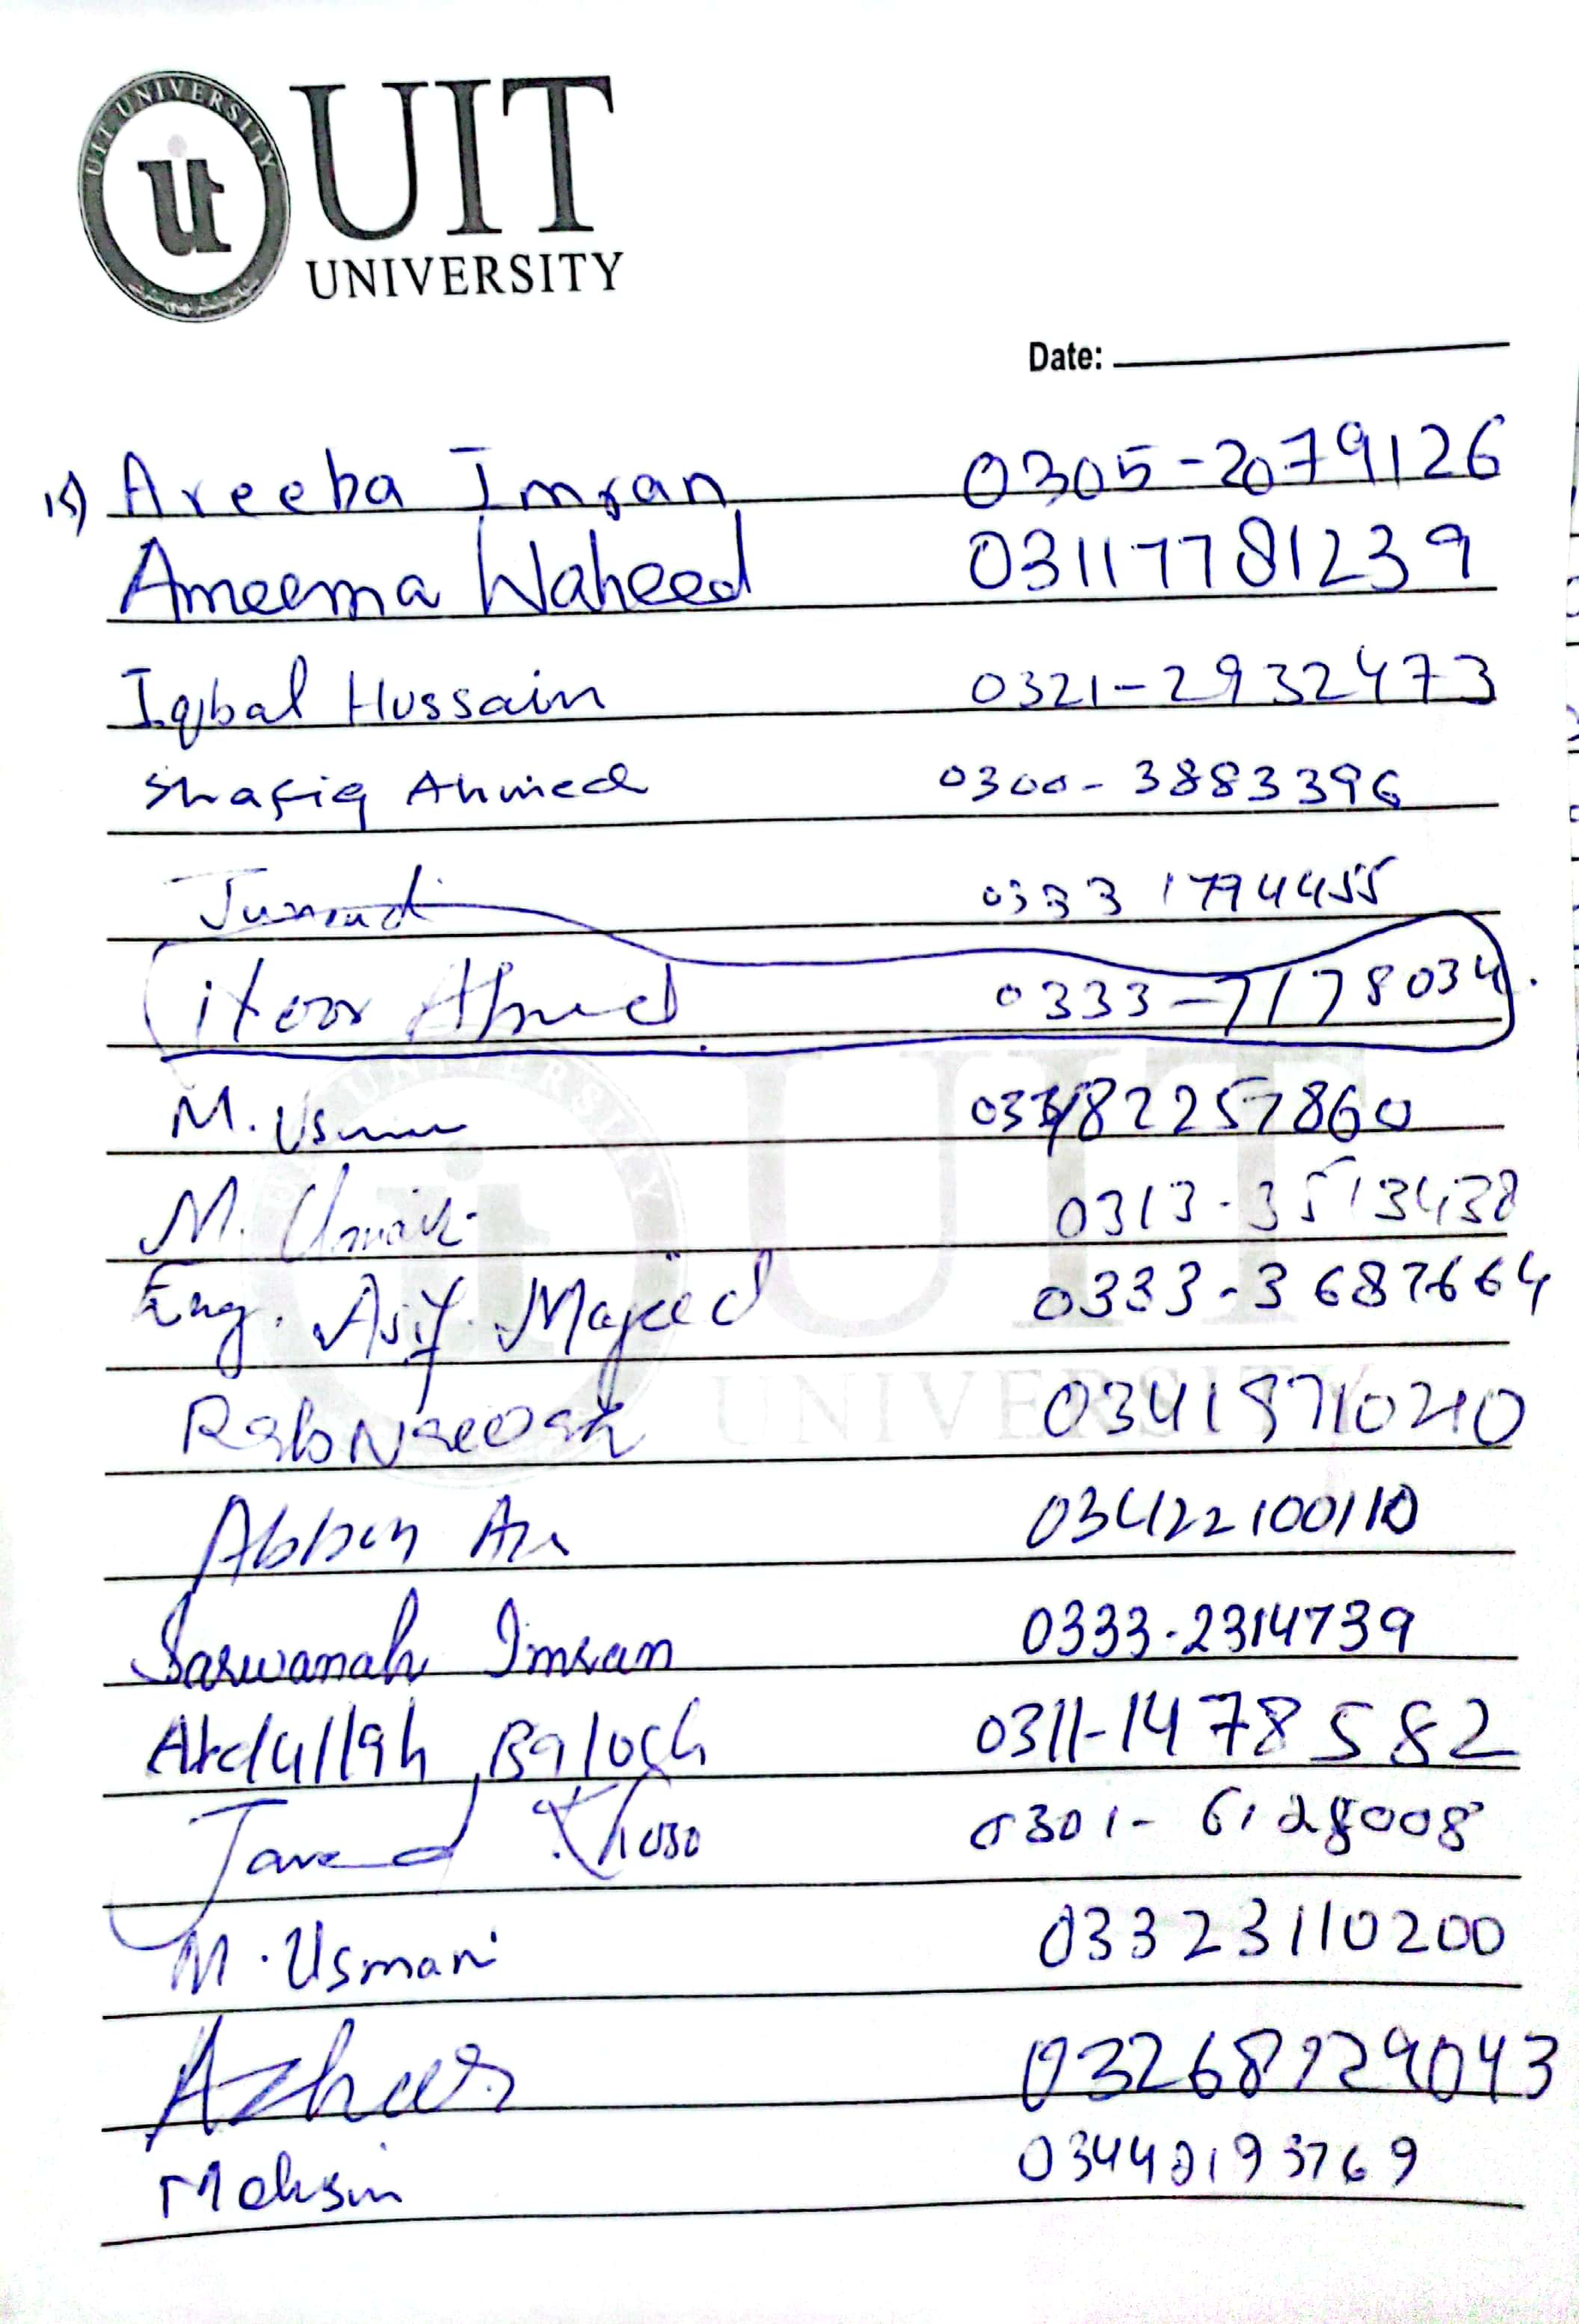 UIT UNIVERSITY
UIT
UNIVERSITY
Date:
15) Areeba Imran 0305-2079126
Ameema Waheed 03117781239
Iqbal Hussain 0321-2932473
Shafiq Ahmed 0300-3883396
Junaid 0333 1794455
Ahmed 0333-7178034
M. Usman
M. Umair 0313-3513438
Eng. Asif Majeed 0333-3687664
RabNawaz
034122100110
Sarwanah Imran 0333-2314739
Abdullah Baloch 0311-1478582
Javed Khoso 0301-6128008
M. Usman 03323110200
Azhar
Mohsin 03440193769
UIT
UNIVERSITY